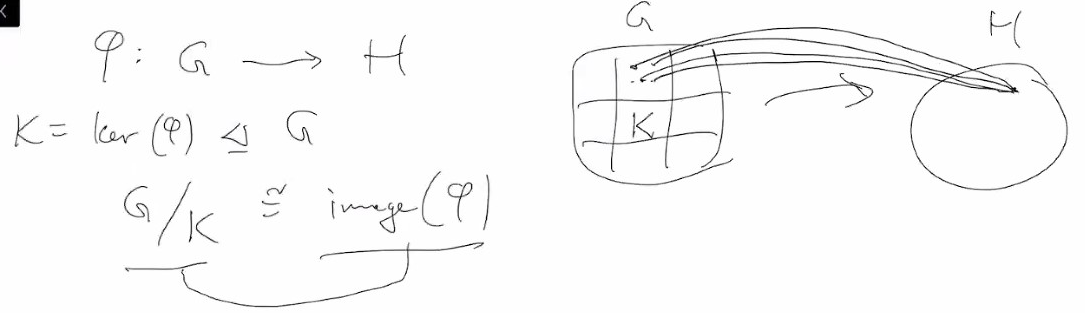 φ: G → H
K = ker(φ) ⊴ G
G/K ≅ image(φ)
G
H
K